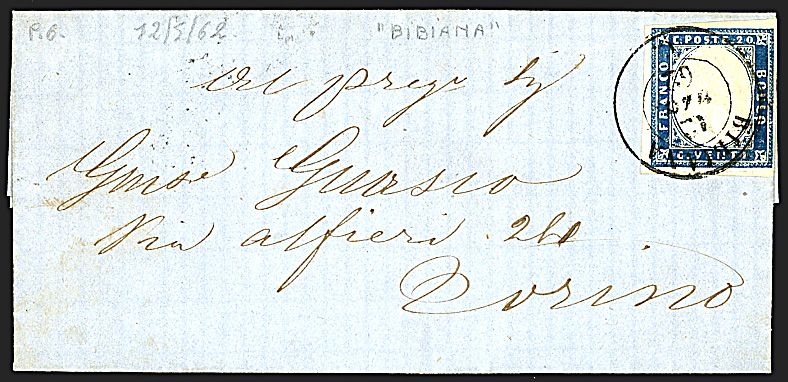 P.6. 12/5/62 "BIBIANA"
C. POSTE. 20.
FRANCO
BOLLO
C. VENTI
BIBIANA
Al preg. Sig
Giuse Guasco
Via alfieri 24
Torino